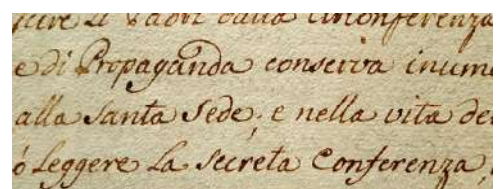 li Padri dalla Circonferenza
e di Propaganda conserva inume
alla Santa Sede, e nella vita de
ó leggere La Secreta Conferenza,